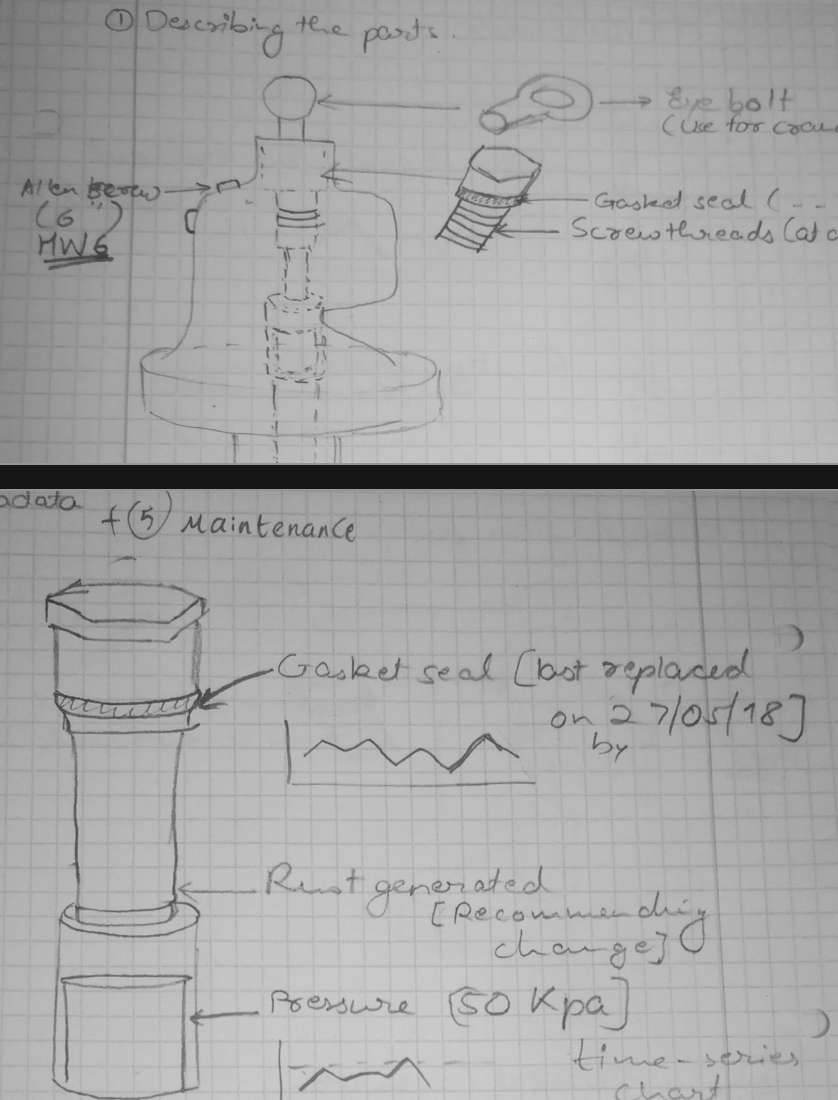 ① Describing the parts.
Eye bolt
(Use for
Allen Screw
(6")
HW6
Gasket seal (--
Screw threads (at
adata
+ ⑤ Maintenance
Gasket seal [last replaced
on 27/05/18]
by
Rust generated
[Recommending
change]
Pressure [50 Kpa]
time-series
chart